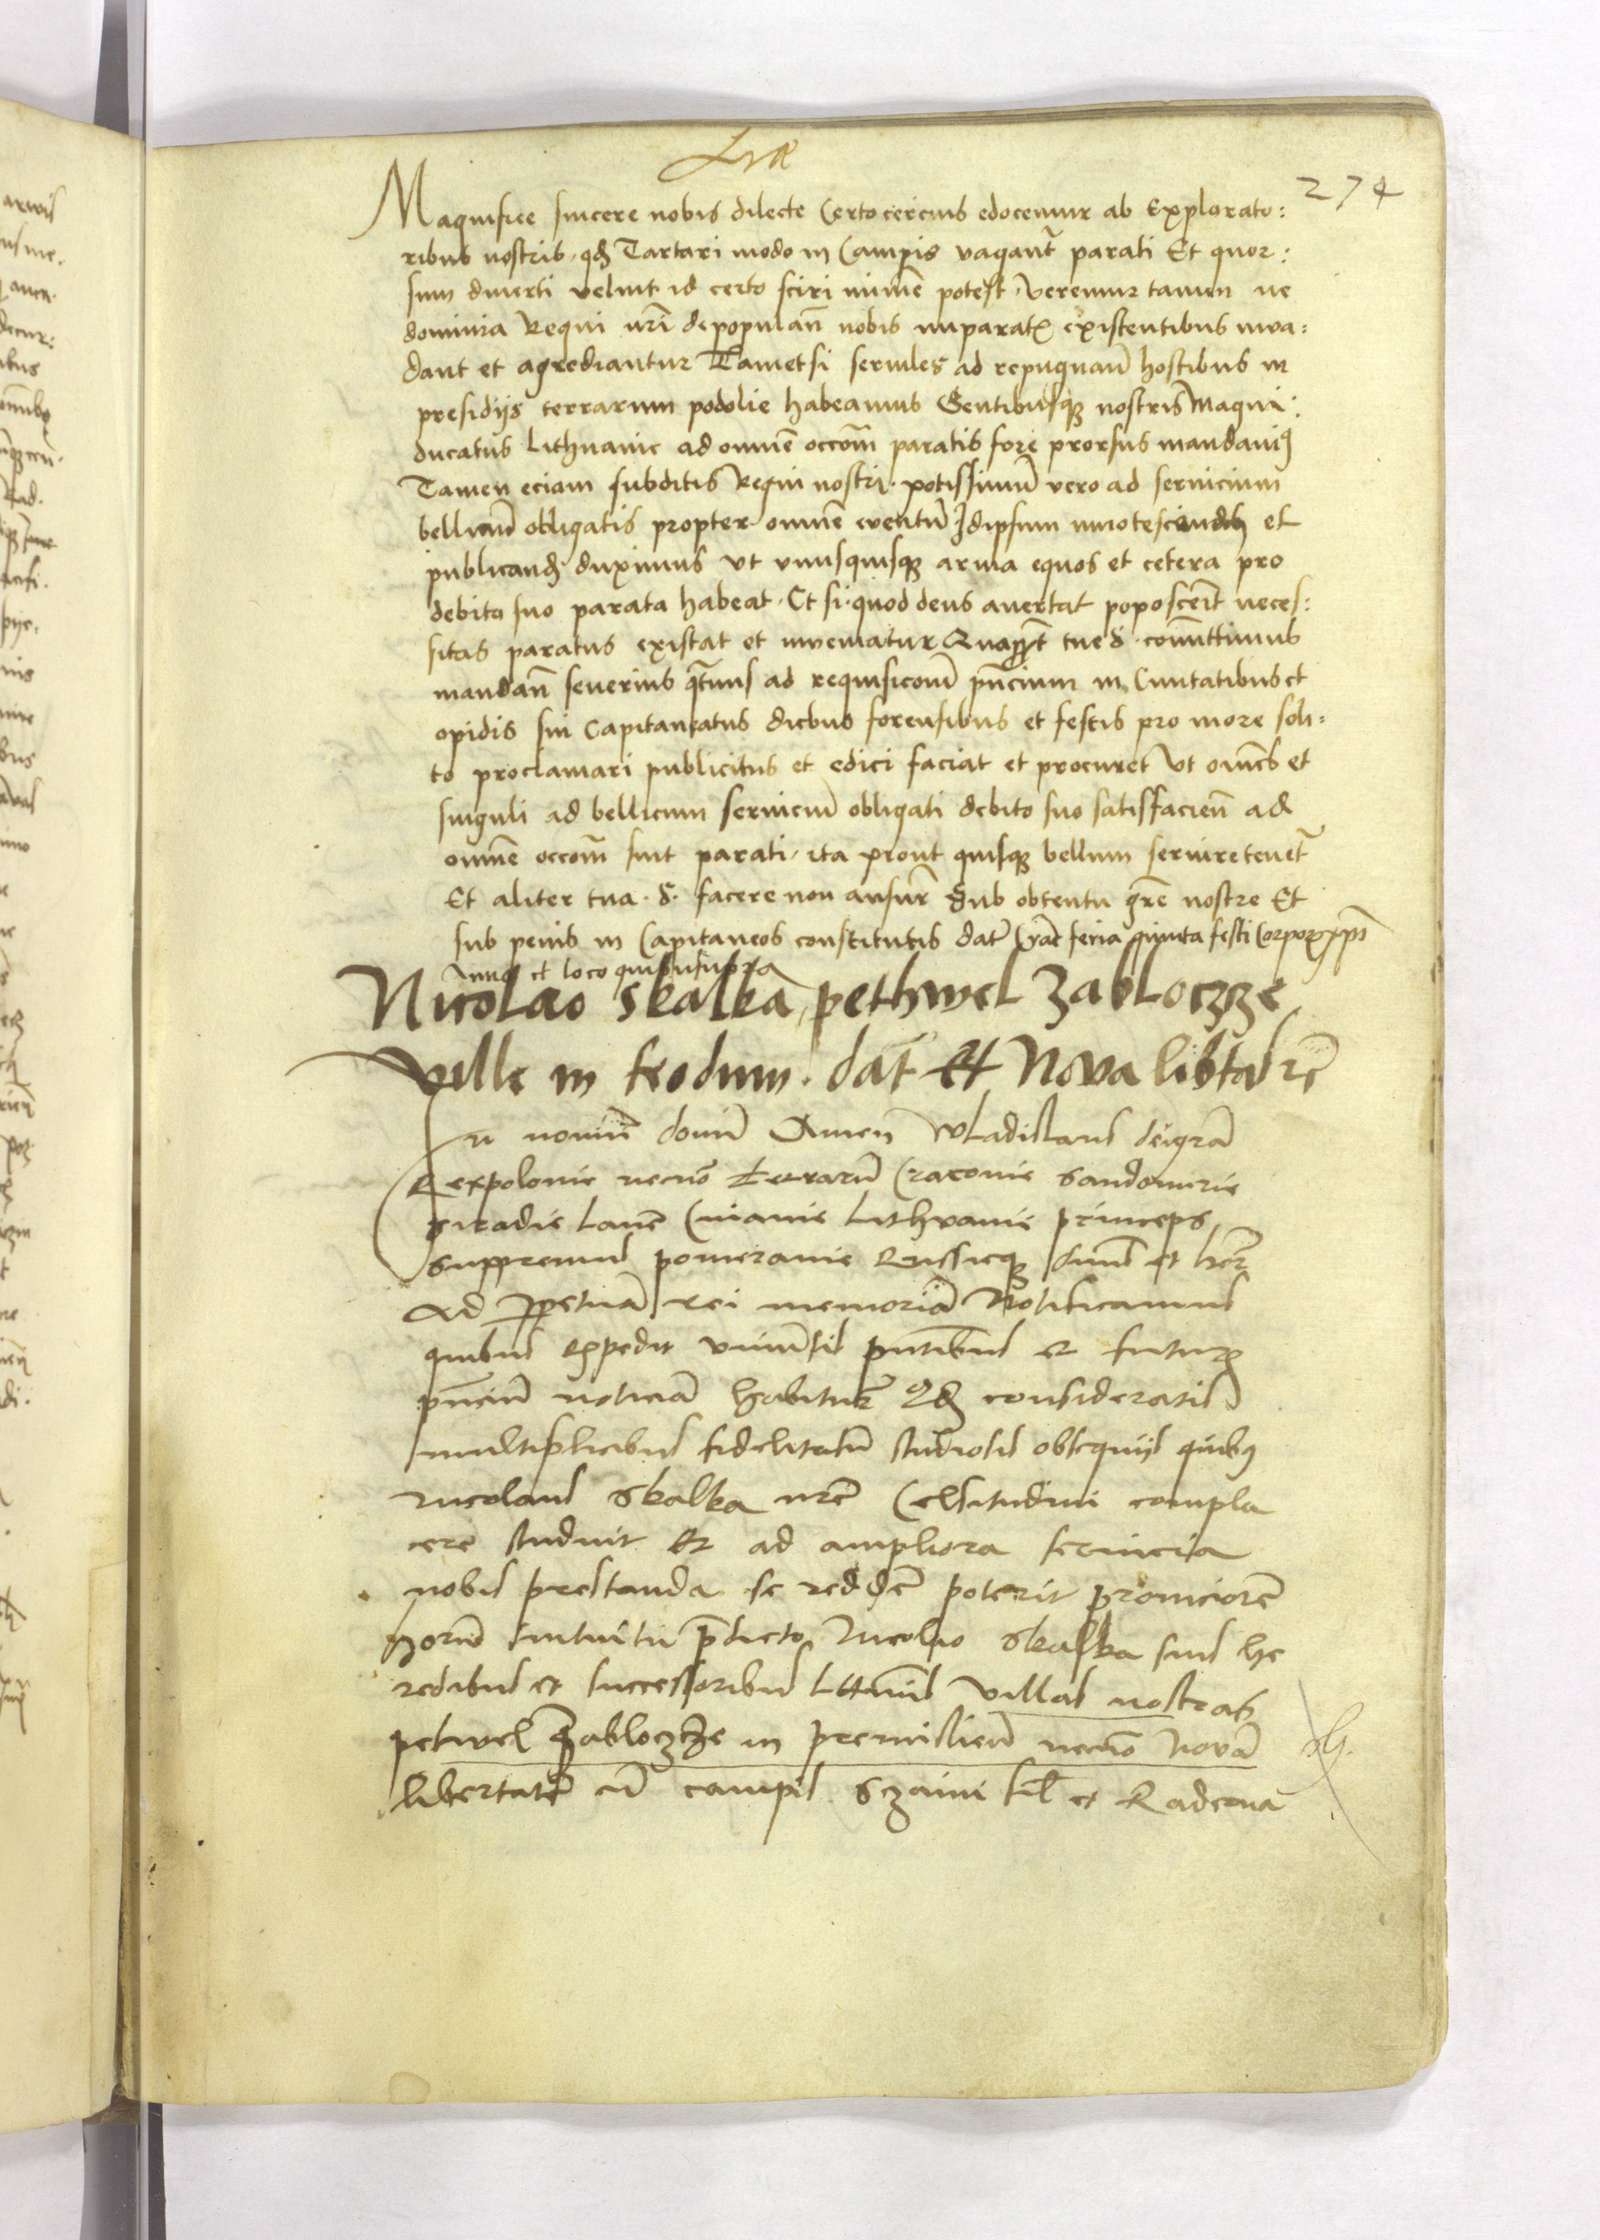 Lrae
274
Magnifice sincere nobis dilecte Certo cercius edocemur ab Explorato:
ribus nostris. qd Tartari modo in Campis vagant parati Et quor:
sum diverti velint id certo sciri minime potest. Veremur tamen ne
dominia Regni nri depopulan nobis imparatis existentibus inva:
dant et agrediantur Tametsi serviles ad repugnan hostibus in
presidijs terrarum podolie habeamus Gentibusque nostris Magni:
ducatus Lithvanie ad omne occom paratis fore prorsus mandavimus
Tamen eciam subditis Regni nostri. potissimu vero ad servicium
bellicum obligatis propter omne eventu Idipsum innotescendum et
publicand duximus Ut unusquisque arma equos et cetera pro
debito suo parata habeat. Et si. quod deus avertat poposcerit neces:
sitas paratus existat et inveniatur tue S. committimus
mandan severius qtenus ad requisicom pncium in Civitatibus et
opidis sui Capitaneatus diebus forensibus et festis pro more soli:
to proclamari publicitus et edici faciat et procuret Ut omnes et
singuli ad bellicum serviciu obligati debito suo satisfacien ad
omne occom sint parati. ita prout quisque bellum servire tenet
Et aliter tua. S. facere non ansur Sub obtentu gre nostre Et
sub penis in Capitaneos constitutis dat Crac feria quinta festi Corporis xpi
Anno et loco quibus supra
Nicolao Skalka, pethwel Zabloczze
Ville in feodum. dat Et Nova libtas re
In nomine domi Amen Wladislaus dei gra
Rex polonie necno terraru Cracovie Sandomirie
Siradie Lanc Cuiavie Lithvanie princeps
Suppremus pomeranie Russieque dominus et heres
Ad ppetua rei memoria Notificamus
quibus expedit universis pntibus et futuris
pncium noticia habitur Qd consideratis
multiplicibus fidelitatu studiosis obsequijs quibus
nicolaus Skalka nre Celsitudini compla
cere studuit Et ad ampliora servicia
nobis prestanda se reddere poterit pronciore
horu intuitu predicto Nicolao Skalka suis he
redibus et successoribus legitimis Villas nostras
petwel Zabloczze in premisliensi necno Nova
libertate cu campis Sczaini et Radcova